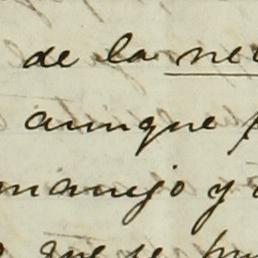 de la
aunque
manejo y
que se